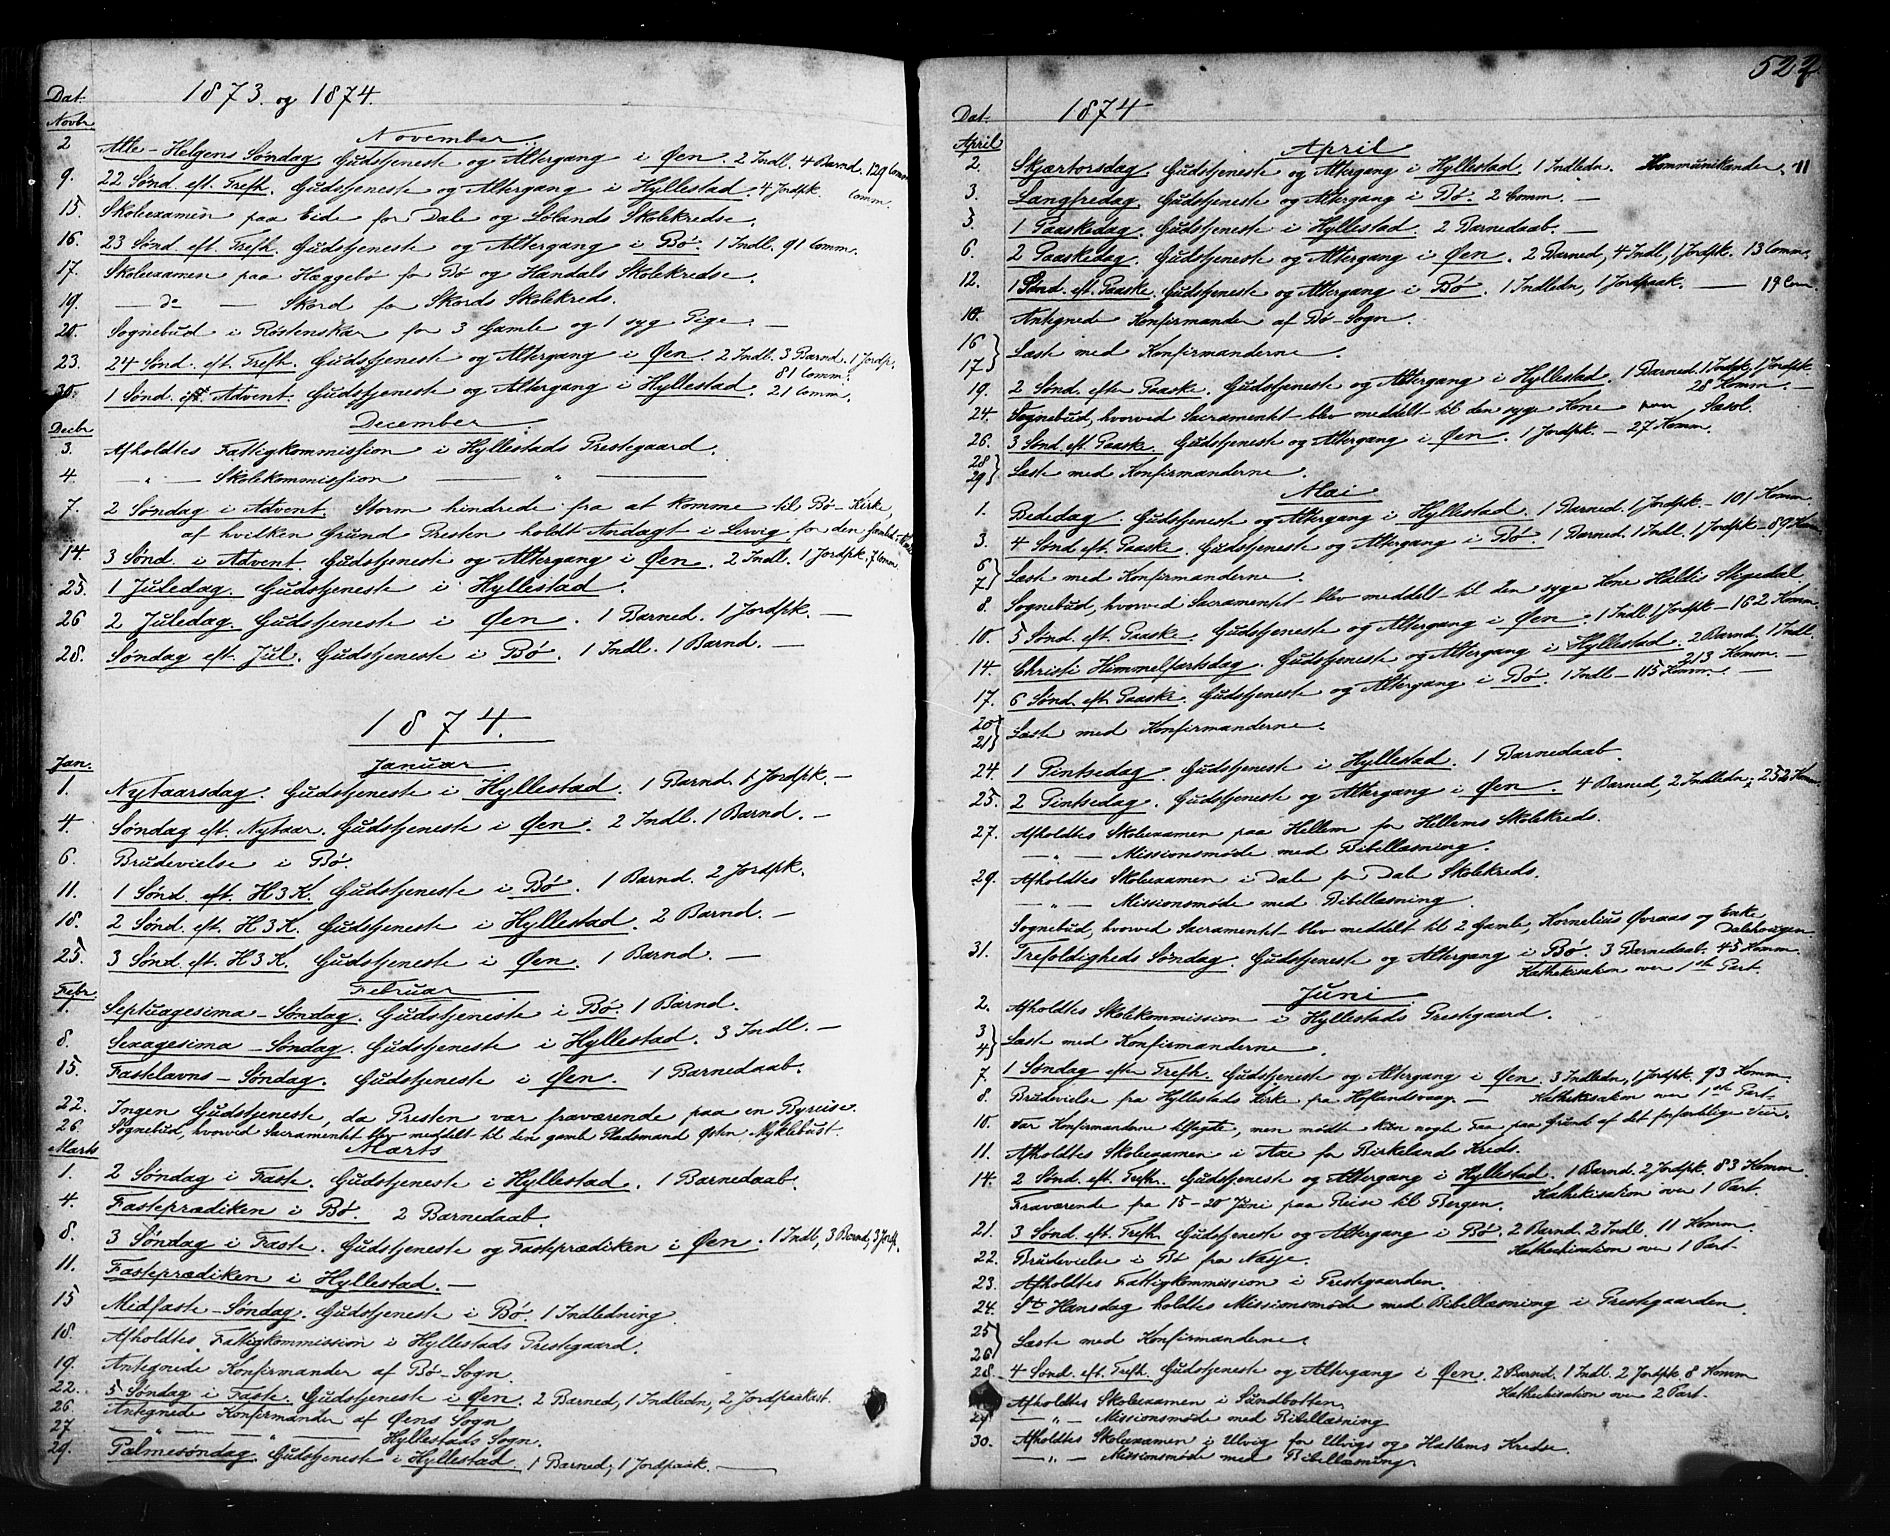 1873. og 1874.
Dat.
Novbr
November.
2 Alle-Helgens Søndag. Gudstjeneste og Altergang i Øen. 2 Indl. 4 Barnd. 129 Comm.
9. 22 Sønd. eft. Trefh. Gudstjeneste og Altergang i Hyllestad. 4 Jordpk. Comm.
15. Skoleexamen paa Eide for Dale og Sølands Skolekredse.
16. 23 Sønd. eft. Trefh. Gudstjeneste og Altergang i Bø. 1 Indl. 91 Comm.
17. Skoleexamen paa Hæggebø for Bø og Handals Skolekredse.
19. — do — Skord for Skords Skolekreds.
20. Sognebud i Røstenskar for 3 Gamle og 1 syg Pige. —
23. 24 Sønd. eft. Trefh. Gudstjeneste og Altergang i Øen. 2 Indl. 3 Barnd. 1 Jordp.
81 Comm.
30. 1 Sønd. eft. Advent. Gudstjeneste og Altergang i Hyllestad. 21 Comm.
Decbr December.
3. Afholdtes Fattigkommission i Hyllestads Prestegaard.
4. — " — Skolekommission — " —
7. 2 Søndag i Advent. Storm hindrede fra at komme til Bø-Kirke,
af hvilken Grund Presten holdt Andagt i Lervig for den
14. 3 Sønd. i Advent. Gudstjeneste og Altergang i Øen. 2 Indl. 1 Jordpk. 7 Comm.
25. 1 Juledag. Gudstjeneste i Hyllestad.
26 2 Juledag. Gudstjeneste i Øen. 1 Barned. 1 Jordpk. —
28. Søndag eft. Jul. Gudstjeneste i Bø. 1 Indl. 1 Barnd. —
1874.
Jan. Januar.
1. Nytaarsdag. Gudstjeneste i Hyllestad. 1 Barnd. 1 Jordpk. —
4. Søndag eft. Nytaar. Gudstjeneste i Øen. 2 Indl. 1 Barnd. —
6. Brudevielse i Bø.
11. 1 Sønd. eft. H 3 K. Gudstjeneste i Bø. 1 Barnd. 2 Jordpk.
18. 2 Sønd. eft. H 3 K. Gudstjeneste i Hyllestad. 2 Barnd. —
25. 3 Sønd. eft. H 3 K. Gudstjeneste i Øen. 1 Barnd. —
Febr. Februar.
1. Septuagesima-Søndag. Gudstjeneste i Bø. 1 Barnd.
8. Sexagesima-Søndag. Gudstjeneste i Hyllestad. 3 Indl. —
15. Fastelavns-Søndag. Gudstjeneste i Øen. 1 Barnedaab.
22. Ingen Gudstjeneste, da Presten var fraværende paa en Byreise.
26. Sognebud, hvorved Sacramentet blev meddelt til den gamle Pladsmand John Nyklebust.
Marts Marts
1. 2 Søndag i Faste. Gudstjeneste i Hyllestad. 1 Barnedaab.
4. Fasteprædiken i Bø. 2 Barnedaab.
8. 3 Søndag i Faste. Gudstjeneste og Fasteprædiken i Øen. 1 Indl, 3 Barnd, 3 Jordp.
11. Fasteprædiken i Hyllestad. —
15 Midfaste-Søndag. Gudstjeneste i Bø. 1 Indledning.
18. Afholdtes Fattigkommission i Hyllestads Prestegaard.
19. Antegnede Konfirmander af Bø-Sogn.
22. 5 Søndag i Faste. Gudstjeneste i Øen. 2 Barned, 1 Indledn, 2 Jordpaakast.
26 Antegnede Konfirmander af Øens Sogn.
27 — " — — " — Hyllestads Sogn.
29. Palmesøndag. Gudstjeneste i Hyllestad. 1 Barned, 1 Jordpaak. —
1874
Dat.
April April
2. Skjærtorsdag. Gudstjeneste og Altergang i Hyllestad. 1 Indledn. Kommunikander. 71
3. Langfredag. Gudstjeneste og Altergang i Bø. 2 Comm. —
5. 1 Paaskedag. Gudstjeneste i Hyllestad. 2 Barnedaab. —
6. 2 Paaskedag. Gudstjeneste og Altergang i Øen. 2 Barned, 4 Indl, 1 Jordpk. 13 Comm.
12. 1 Sønd. eft. Paaske. Gudstjeneste og Altergang i Bø. 1 Indledn, 1 Jordpaak. — 19 Com.
Antegnede Konfirmander af Bø-Sogn.
16
17 } Læste med Konfirmanderne.
19. 2 Sønd. eftr Paaske. Gudstjeneste og Altergang i Hyllestad. 1 Barned. 1 Indpk. 1 Jordpk
28 Komm. —
24. Sognebud, hvorved Sacramentet blev meddelt til den syge Kone paa Sæsol.
26. 3 Sønd. eft. Paaske. Gudstjeneste og Altergang i Øen. 1 Jordpk. — 27 Komm.
28
29 } Læste med Konfirmanderne.
Mai
1. Bededag. Gudstjeneste og Altergang i Hyllestad. 1 Barned. 1 Jordpk. — 101 Komm.
3. 4 Sønd. eft. Paaske. Gudstjeneste og Altergang i Bø. 1 Barned. 1 Indl. 1 Jordpk — 89 Kom
6
7 } Læste med Konfirmanderne.
8. Sognebud, hvorved Sacramentet blev meddelt til den syge Kone Hallis Stigedal.
10. 5 Sønd. eft. Paaske. Gudstjeneste og Altergang i Øen. 1 Indl. 1 Jordpk — 162 Komm.
14. Christi Himmelfartsdag. Gudstjeneste og Altergang i Hyllestad. 2 Barnd, 1 Indl.
213 Komm. —
17. 6 Sønd. eft. Paaske. Gudstjeneste og Altergang i Bø. 1 Indl — 115 Komm. —
20
21 } Læste med Konfirmanderne.
24. 1 Pintsedag. Gudstjeneste i Hyllestad. 1 Barnedaab.
25. 2 Pintsedag. Gudstjeneste og Altergang i Øen. 4 Barned, 2 Indledn, 252 Komm
27. Afholdtes Skoleexamen paa Hellem for Hellems Skolekreds.
— " — Missionsmøde med Bibellæsning.
29. Afholdtes Skoleexamen i Dale for Dale Skolekreds.
— " — Missionsmøde med Bibellæsning.
Sognebud, hvorved Sacramentet blev meddelt til 2 Gamle, Kornelius Øvraas og Enke
Dalehougen
31. Trefoldigheds Søndag. Gudstjeneste og Altergang i Bø. 3 Barnedaab. 45 Komm.
Kathekisation over 1ste Part.
Juni
2. Afholdtes Skolekommission i Hyllestads Prestgaard.
3
4 } Læste med Konfirmanderne.
7. 1 Søndag eftr Trefh. Gudstjeneste og Altergang i Øen. 3 Indledn, 1 Jordpk. 93 Komm.
Kathekisation over 1ste Part.
8. Brudevielse fra Hyllestads Kirke fra Høflandsvaag. —
10. Var Konfirmanderne tilsagte, men mødte kun nogle Faa paa Grund af det farefulde Veir.
11. Afholdtes Skoleexamen i Aae for Birkelands Kreds.
14. 2 Sønd. eft. Trefh. Gudstjeneste og Altergang i Hyllestad. 1 Barnd. 2 Jordpk. 83 Komm.
Kathekisation over 1 Part.
Fraværende fra 15–20 Juni paa Reise til Bergen.
21. 3 Sønd. eft. Trefh. Gudstjeneste og Altergang i Bø. 2 Barnd. 2 Indl. 11 Komm.
Kathekisation over 1 Part.
22. Brudevielse i Bø fra Nasje.
23. Afholdtes Fattigkommission i Prestegaarden.
24. St. Hansdag holdtes Missionsmøde med Bibellæsning i Prestegaarden.
25
26 } Læste med Konfirmanderne.
28. 4 Sønd. eft. Trefh. Gudstjeneste og Altergang i Øen. 2 Barnd. 1 Indl. 2 Jordpk 8 Komm
Kathekisation over 2 Part.
Afholdtes Skoleexamen i Sundbotten.
29. — " — Missionsmøde med Bibellæsning
30. Afholdtes Skoleexamen i Ulvig for Ulvigs og Hatlems Kredse.
— " — Missionsmøde med Bibellæsning.